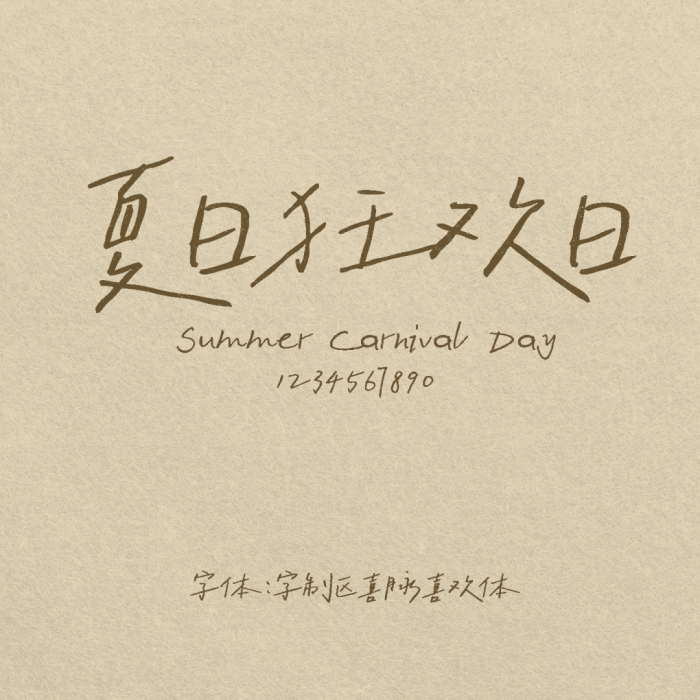 夏日狂欢日
Summer Carnival Day
1234567890
字体:字制区喜脉喜欢体